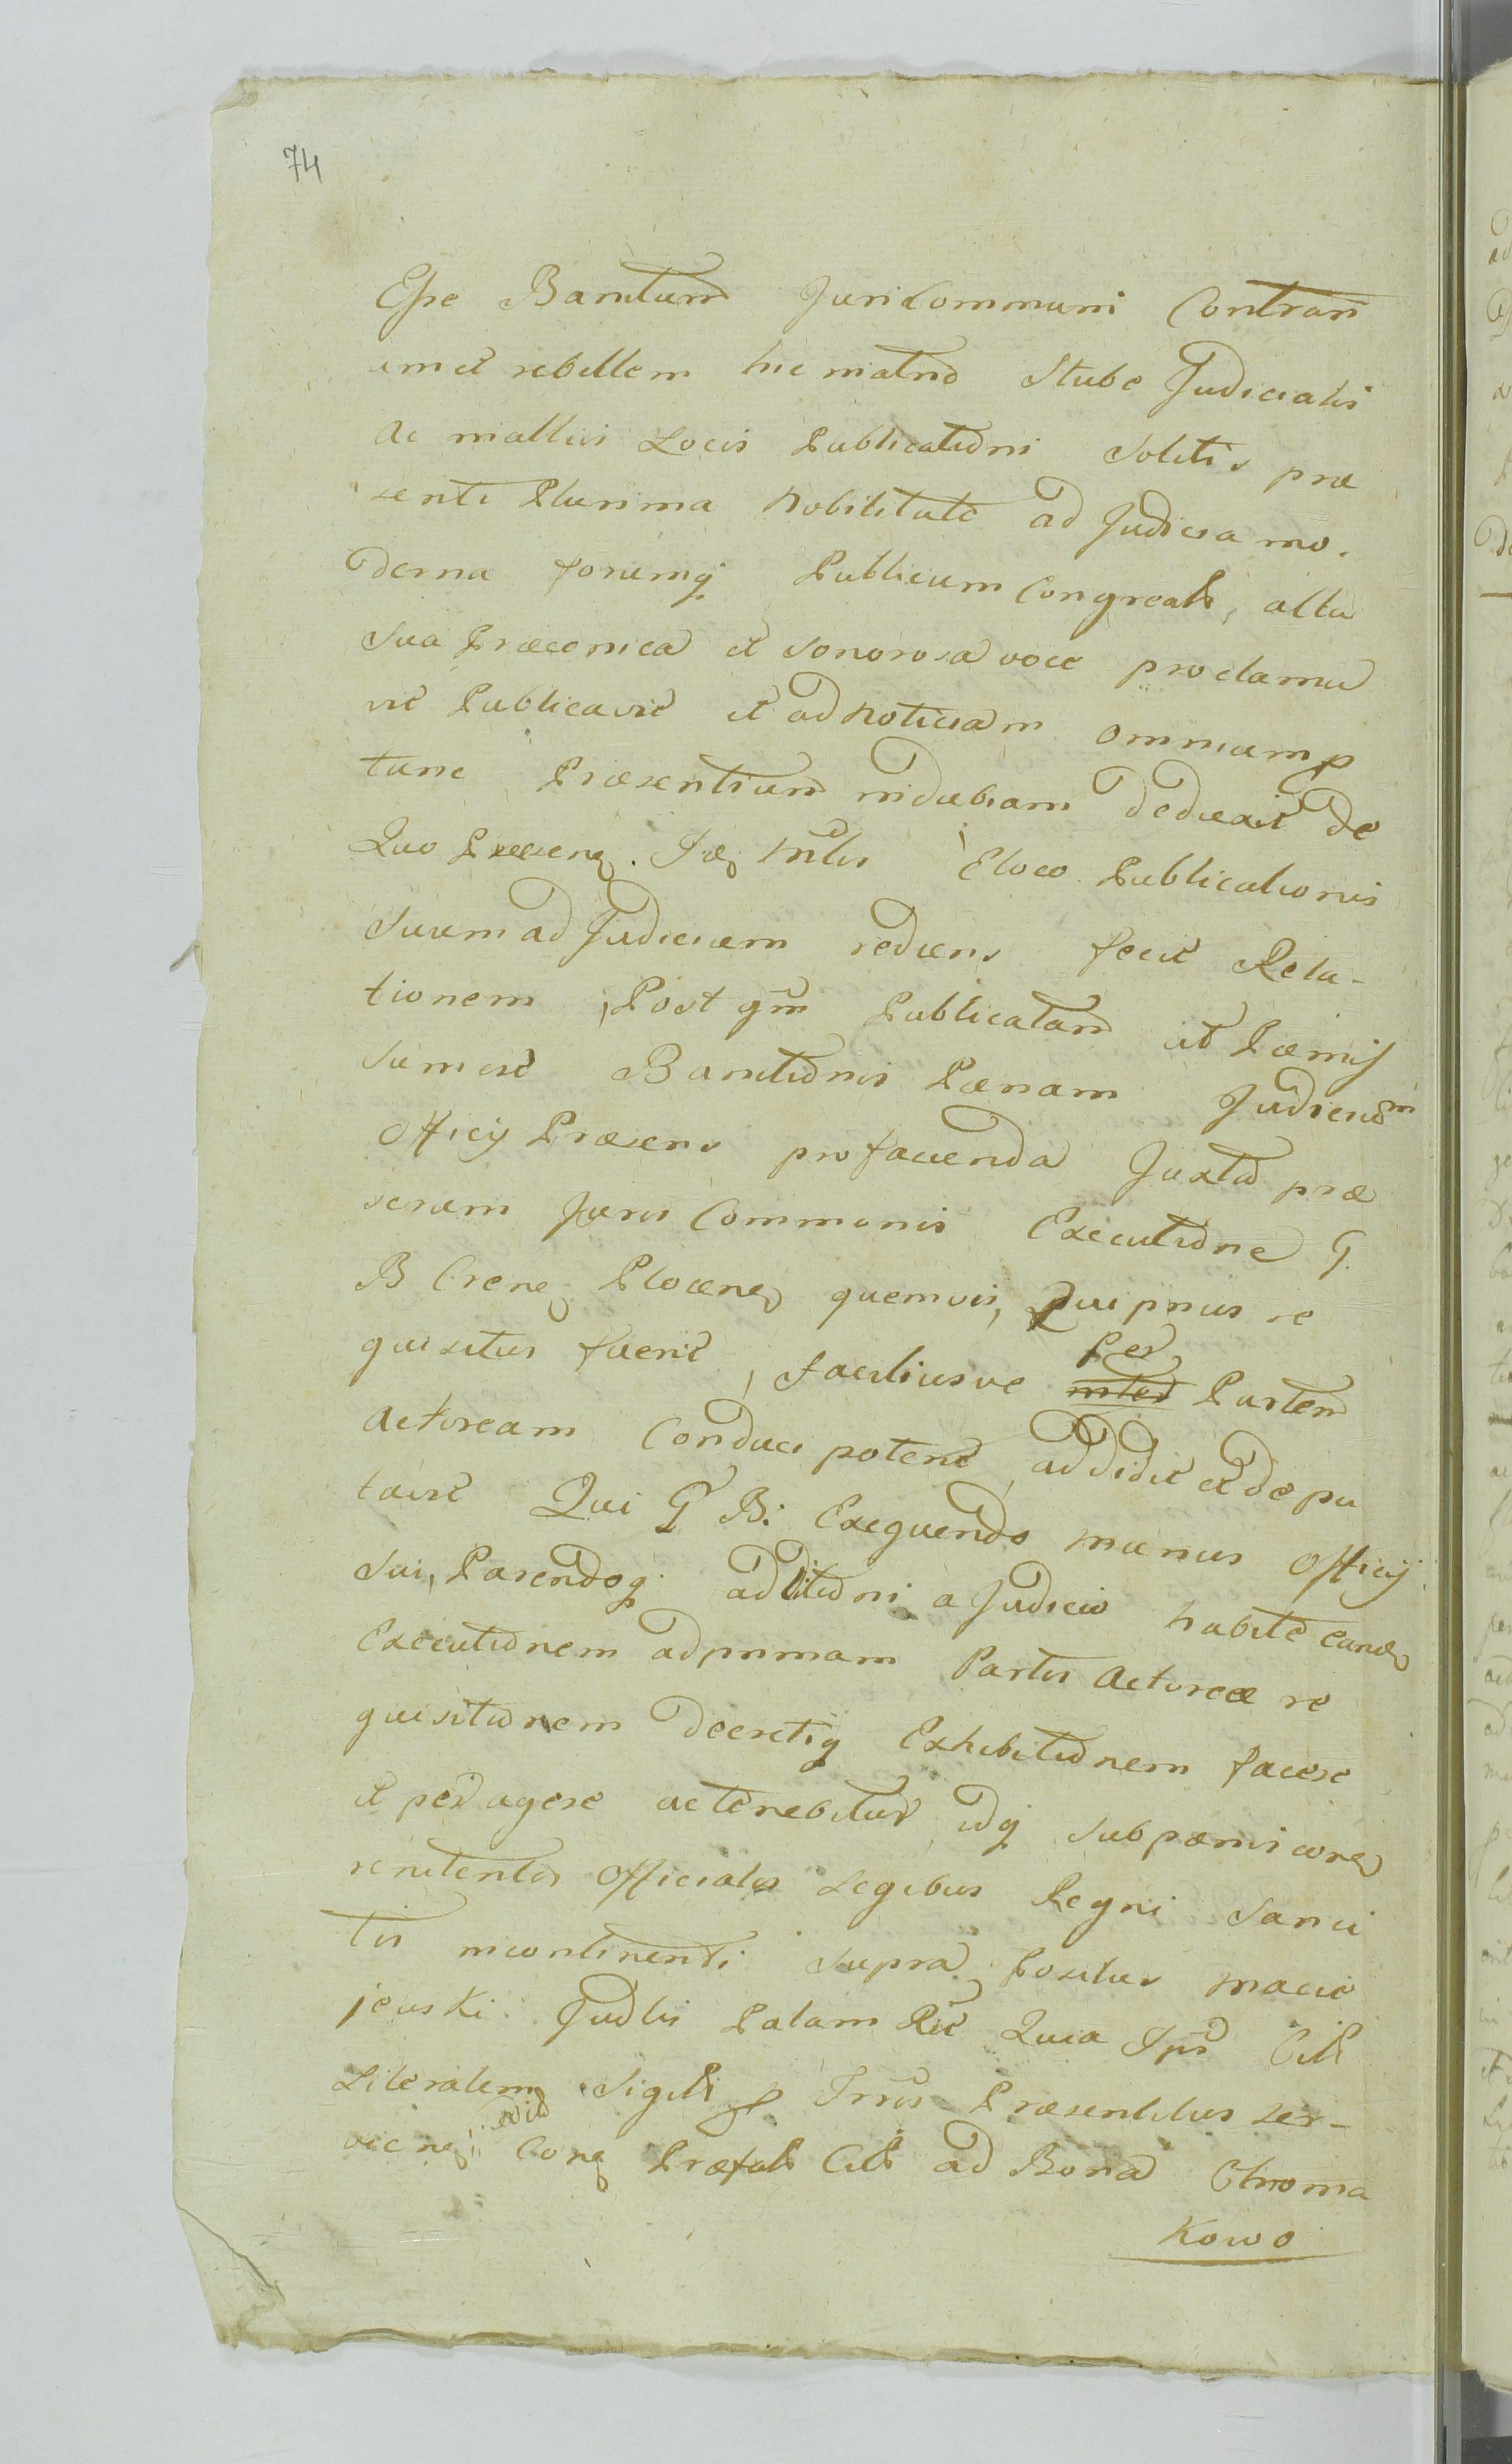 74
Esse Banitum Juricommuni Contrari
um et rebellem hic in atrio Stube Judicialis
Ac in alliis Locis Publicationi Solitis præ
senti Plurima Nobilitate ad Judicia mo.
derna forumq Publicum Congregata, alta
Sua Præconica et sonorosa voce proclama
vit Publicavit et ad Noticiam omnium p
tunc Præsentium indubiam deduxit de
Quo Præsens. Idq Mtlis Eloco Publicationis
Suum ad Judicium rediens fecit Rela-
tionem, Post qm Publicatam ut Pæmis
sum est Banitionis Pænam Judicium
Officij Præsens pro facienda Juxta præ
scrum Juris Communis Executione G.
B Crenq Plocenq quemvis, Qui prius re
quisitus fuerit, faciliusve Per Partem
Actoream Conduci poterit, addidit et depu
tavit Qui G B. Exequendo munus Officij
Sui, Parendoq additioni a Judicio habite eandq
Executionem ad primam Partis Actoreæ re
quisitionem decretiq Exhibitionem facere
et per agere ac tenebitur idq sub pænis conq
renitentes Officiales Legibus Regni Sanci
tis incontinenti Supra Positus Macie
jewski Judlis Palam Rit Quia Ipse Citt
Literalem Sigilli p Trris Præsentibus ser-
viens Conq Præfatt Citt ad Bona Chroma
Kowo